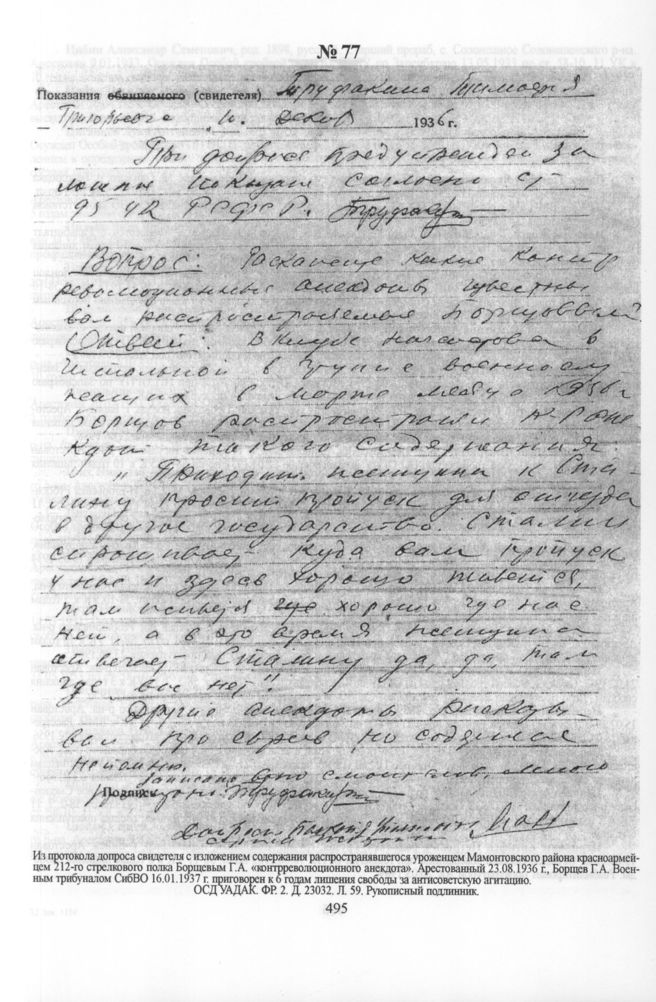 № 77
Показания обвиняемого (свидетеля) Труфакина Тимофея
Григорьевича 1936 г.
При допросе предупрежден за
ложные показания согласно ст
95 УК РСФСР. Труфакин
Вопрос: Раскажите какие контр
революционные анекдоты известны
вам распространяемые Борщовым.
Ответ: В клубе
читальной в группе военнослу
жащих в марте месяце 1936 г
Борщов распространял к-р анек
кдот такого содержания:
"Приходит женщина к Ста-
лину просит пропуск для отъезда
в другое государство. Сталин
спрошивает куда вам пропуск
у нас и здесь хорошо живется,
там живется где хорошо где нас
нет, а в это время женщина
отвечает Сталину да, да, там
где вас нет".
Другие анекдоты раскозы
вал про евреев но содержание
непомню.
Записано верно с моих слов, мною
Подпись прочитано. Труфакин
Допросил
Из протокола допроса свидетеля с изложением содержания распространявшегося уроженцем Мамонтовского района красноармей-
цем 212-го стрелкового полка Борщевым Г.А. «контрреволюционного анекдота». Арестованный 23.08.1936 г., Борщев Г.А. Воен-
ным трибуналом СибВО 16.01.1937 г. приговорен к 6 годам лишения свободы за антисоветскую агитацию.
ОСД УАДАК. ФР. 2. Д. 23032. Л. 59. Рукописный подлинник.
495